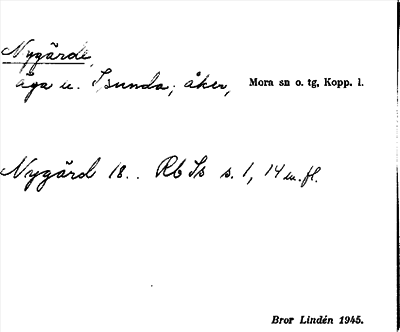 Nygärde,
äga u. Isunda; åker, Mora sn o. tg, Kopp. l.
Nygärd 18.. Rb Is s. 1, 14 m.fl.
Bror Lindén 1945.